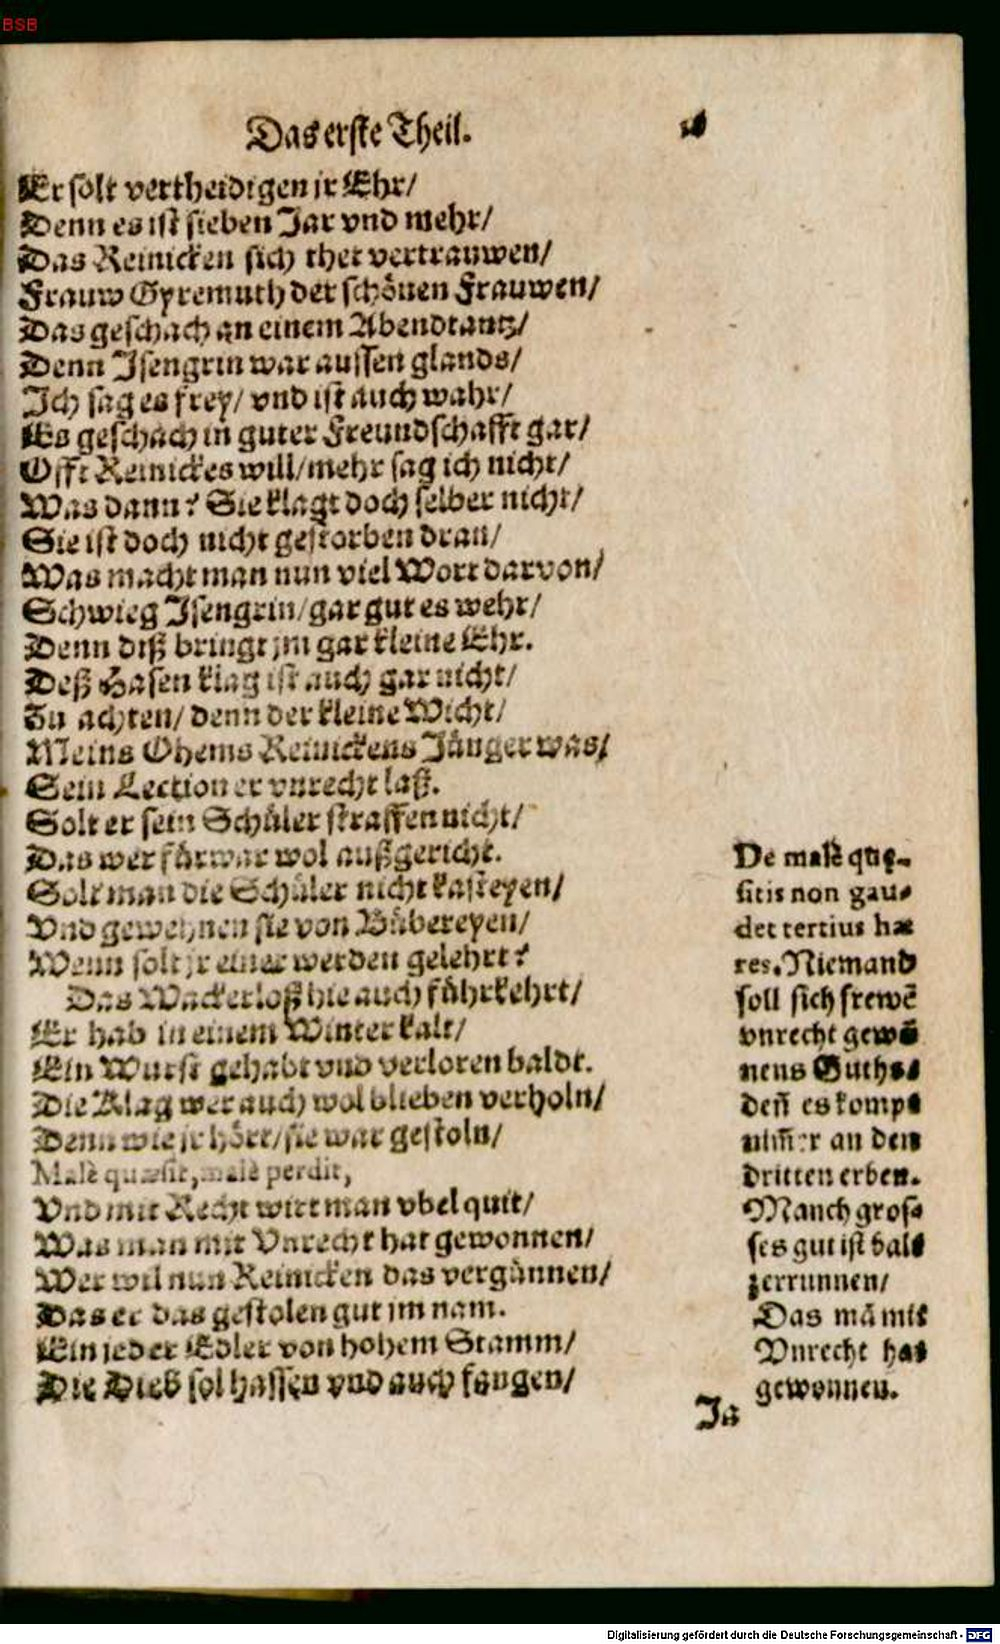 BSB
Das erste Theil.
Er solt vertheidigen jr Ehr/
Denn es ist sieben Jar vnd mehr/
Das Reinicken sich thet vertrauwen/
Frauw Gyremuth der schönen Frauwen/
Das geschach an einem Abendtantz/
Denn Isengrin war aussen glands/
Ich sag es frey/ vnd ist auch wahr/
Es geschach in guter Freundschafft gar/
Offt Reinickes will/mehr sag ich nicht/
Was dann? Sie klagt doch selber nicht/
Sie ist doch nicht gestorben dran/
Was macht man nun viel Wort darvon/
Schwieg Isengrin/gar gut es wehr/
Denn diß bringt jm gar kleine Ehr.
Deß Hasen klag ist auch gar nicht/
Zu achten/ denn der kleine Wicht/
Meins Ohems Reinickens Jünger was/
Sein Lection er vnrecht laß.
Solt er sein Schüler straffen nicht/
Das wer fürwar wol außgericht.
Solt man die Schüler nicht kasteyen/
Vnd gewehnen sie von Bübereyen/
Wenn solt jr einer werden gelehrt?
Das Wackerloß hie auch führkehrt/
Er hab in einem Winter kalt/
Ein Wurst gehabt vnd verloren baldt.
Die Klag wer auch wol blieben verholn/
Denn wie jr hört/sie war gestoln/
Malè quæsit, malè perdit,
Vnd mit Recht wirt man vbel quit/
Was man mit Vnrecht hat gewonnen/
Wer wil nun Reinicken das vergünnen/
Das er das gestolen gut jm nam.
Ein jeder Edler von hohem Stamm/
Die Dieb sol hassen vnd auch fangen/
De malè quę-
sitis non gau-
det tertius hæ
res. Niemand
soll sich frewẽ
vnrecht gewõ
nens Guths/
deñ es kompt
nim̃er an den
dritten erben.
Manch gros-
ses gut ist bald
zerrunnen/
Das mã mit
Vnrecht hat
gewonnen.
Ja
Digitalisierung gefördert durch die Deutsche Forschungsgemeinschaft - DFG